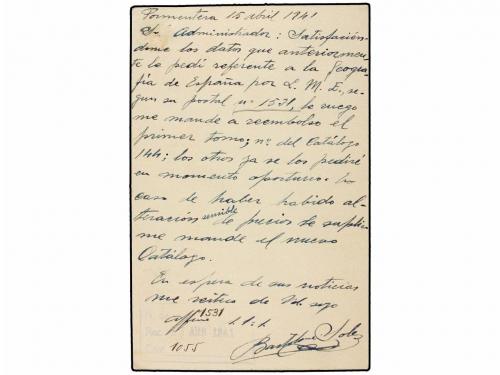 Formentera 15 abril 1941
Sr Administrador: Satisfacien-
dome los datos que anteriormen-
te le pedi referente a la Geogra-
fia de España por L. M. E., se-
gun su postal nº 1531, le ruego
me mande a reembolso el
primer tomo; nº del Catálogo
144; los otros ya se los pediré
en momento oportuno. En
caso de haber habido al-
teración sensible de precios le suplico
me mande el nuevo
Catálogo.
En espera de sus noticias
me reitero de Vd. sego
affmo 1531 s. s. s.
ABR 1941
1055 Bartolome